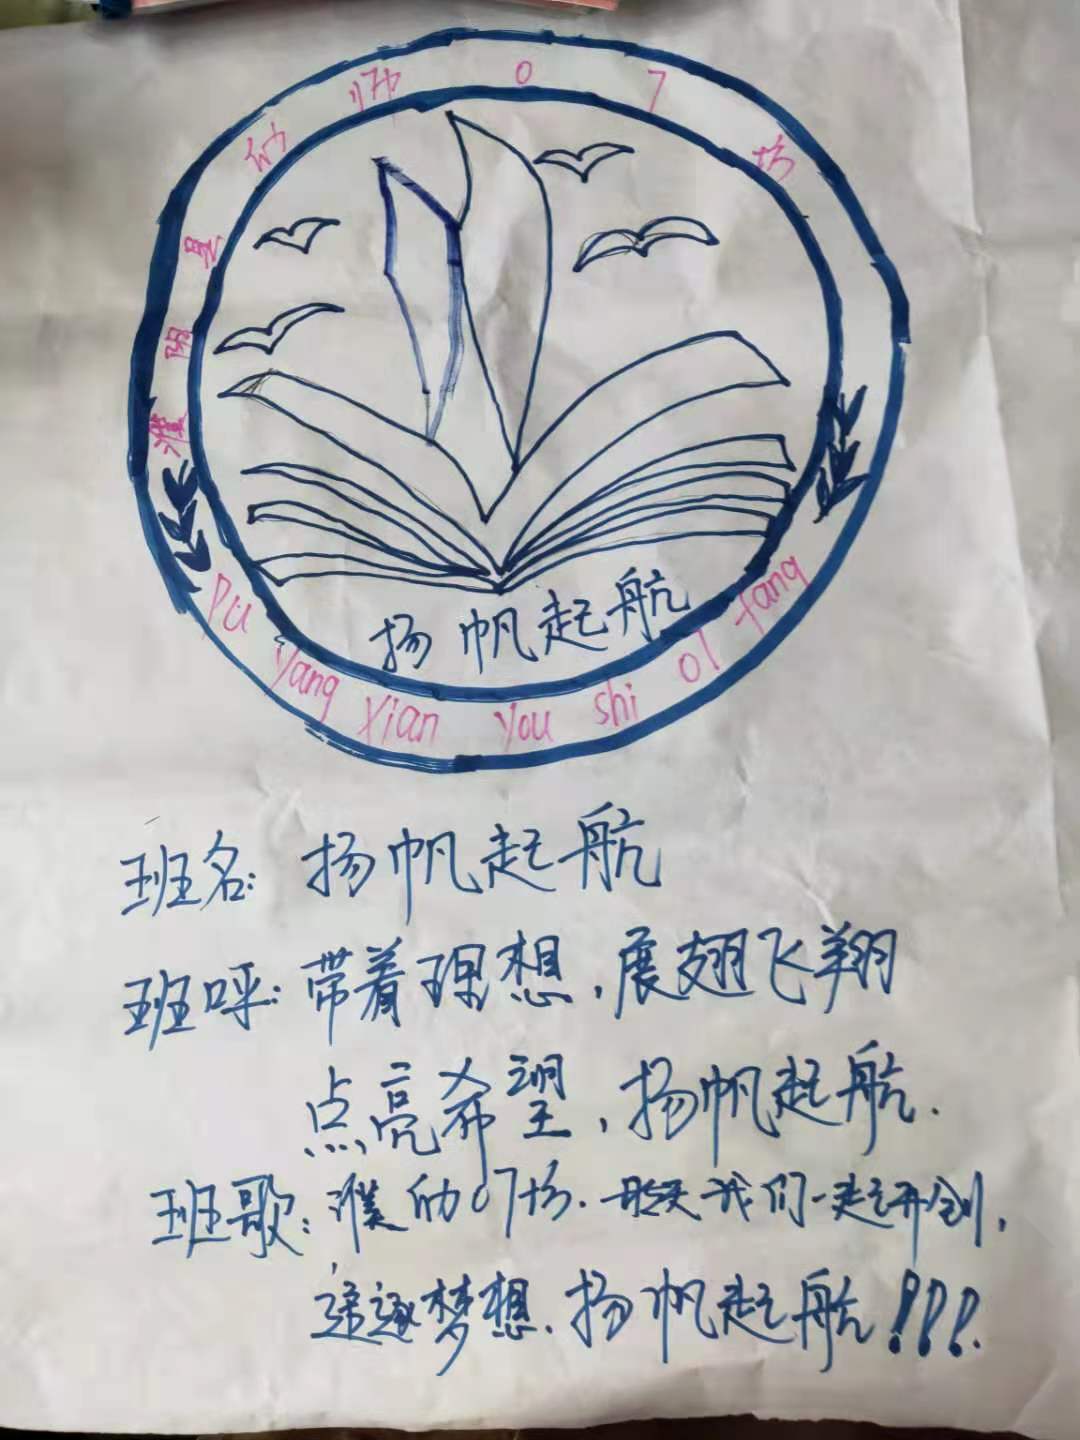 濮阳县幼师07坊
扬帆起航
Pu yang Xian you shi 01 fang
班名: 扬帆起航
班呼: 带着理想,展翅飞翔
点亮希望,扬帆起航.
班歌: 濮幼07坊. 我们一起开创,
追逐梦想.扬帆起航!!!